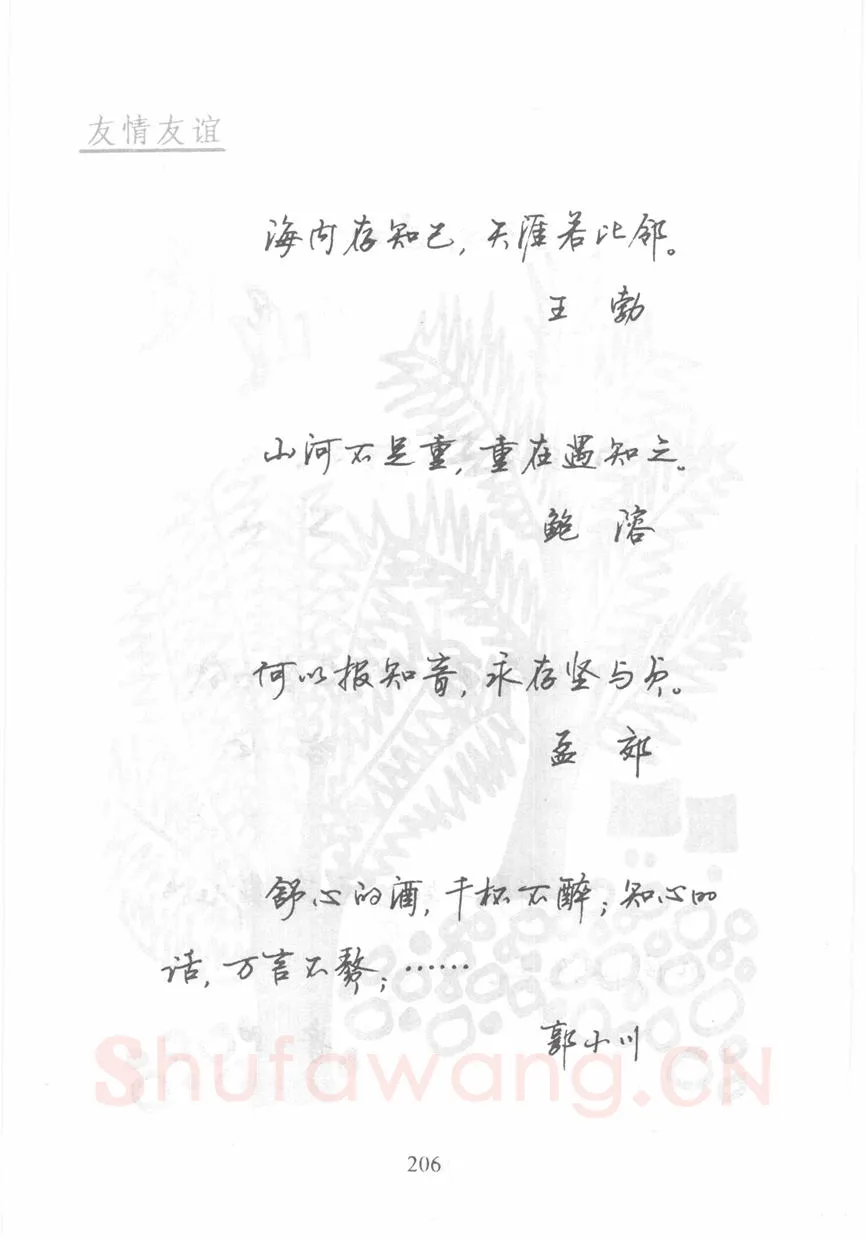 友情友谊
海内存知己，天涯若比邻。
王 勃
山河不足重，重在遇知己。
鲍 溶
何以报知音，永存坚与贞。
孟 郊
舒心的酒，千杯不醉；知心的
话，万言不赘；……
郭小川
Shufawang.CN
206